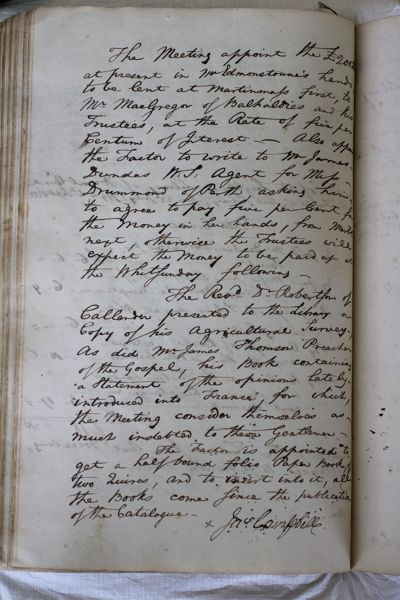 The Meeting appoint the £200
at present in Mr Edmonstoune's hands
to be lent at Martinmass first, to
Mr MacGregor of Balhaldies and his
Trustees, at the Rate of five per
Centum of Interest — Also appoint
the Factor to write to Mr James
Dundas W.S. Agent for Miss
Drummond of Perth asking him
to agree to pay five per Cent for
the Money in her hands, from Marts
next, otherwise the Trustees will
expect the Money to be paid up at
the Whitsunday following —
The Revd Dr Robertson of
Callender presented to the Library a
Copy of his Agricultural Survey,
As did Mr James Thomson Preacher
of the Gospel, his Book containing
a Statement of the opinions lately
introduced into France, for which
the Meeting consider themselves as
much indebted to these Gentlemen
The Factor is appointed to
get a half bound folio Paper Book of
two Quires, and to insert into it, all
the Books come since the publication
of the Catalogue —
x Campbell